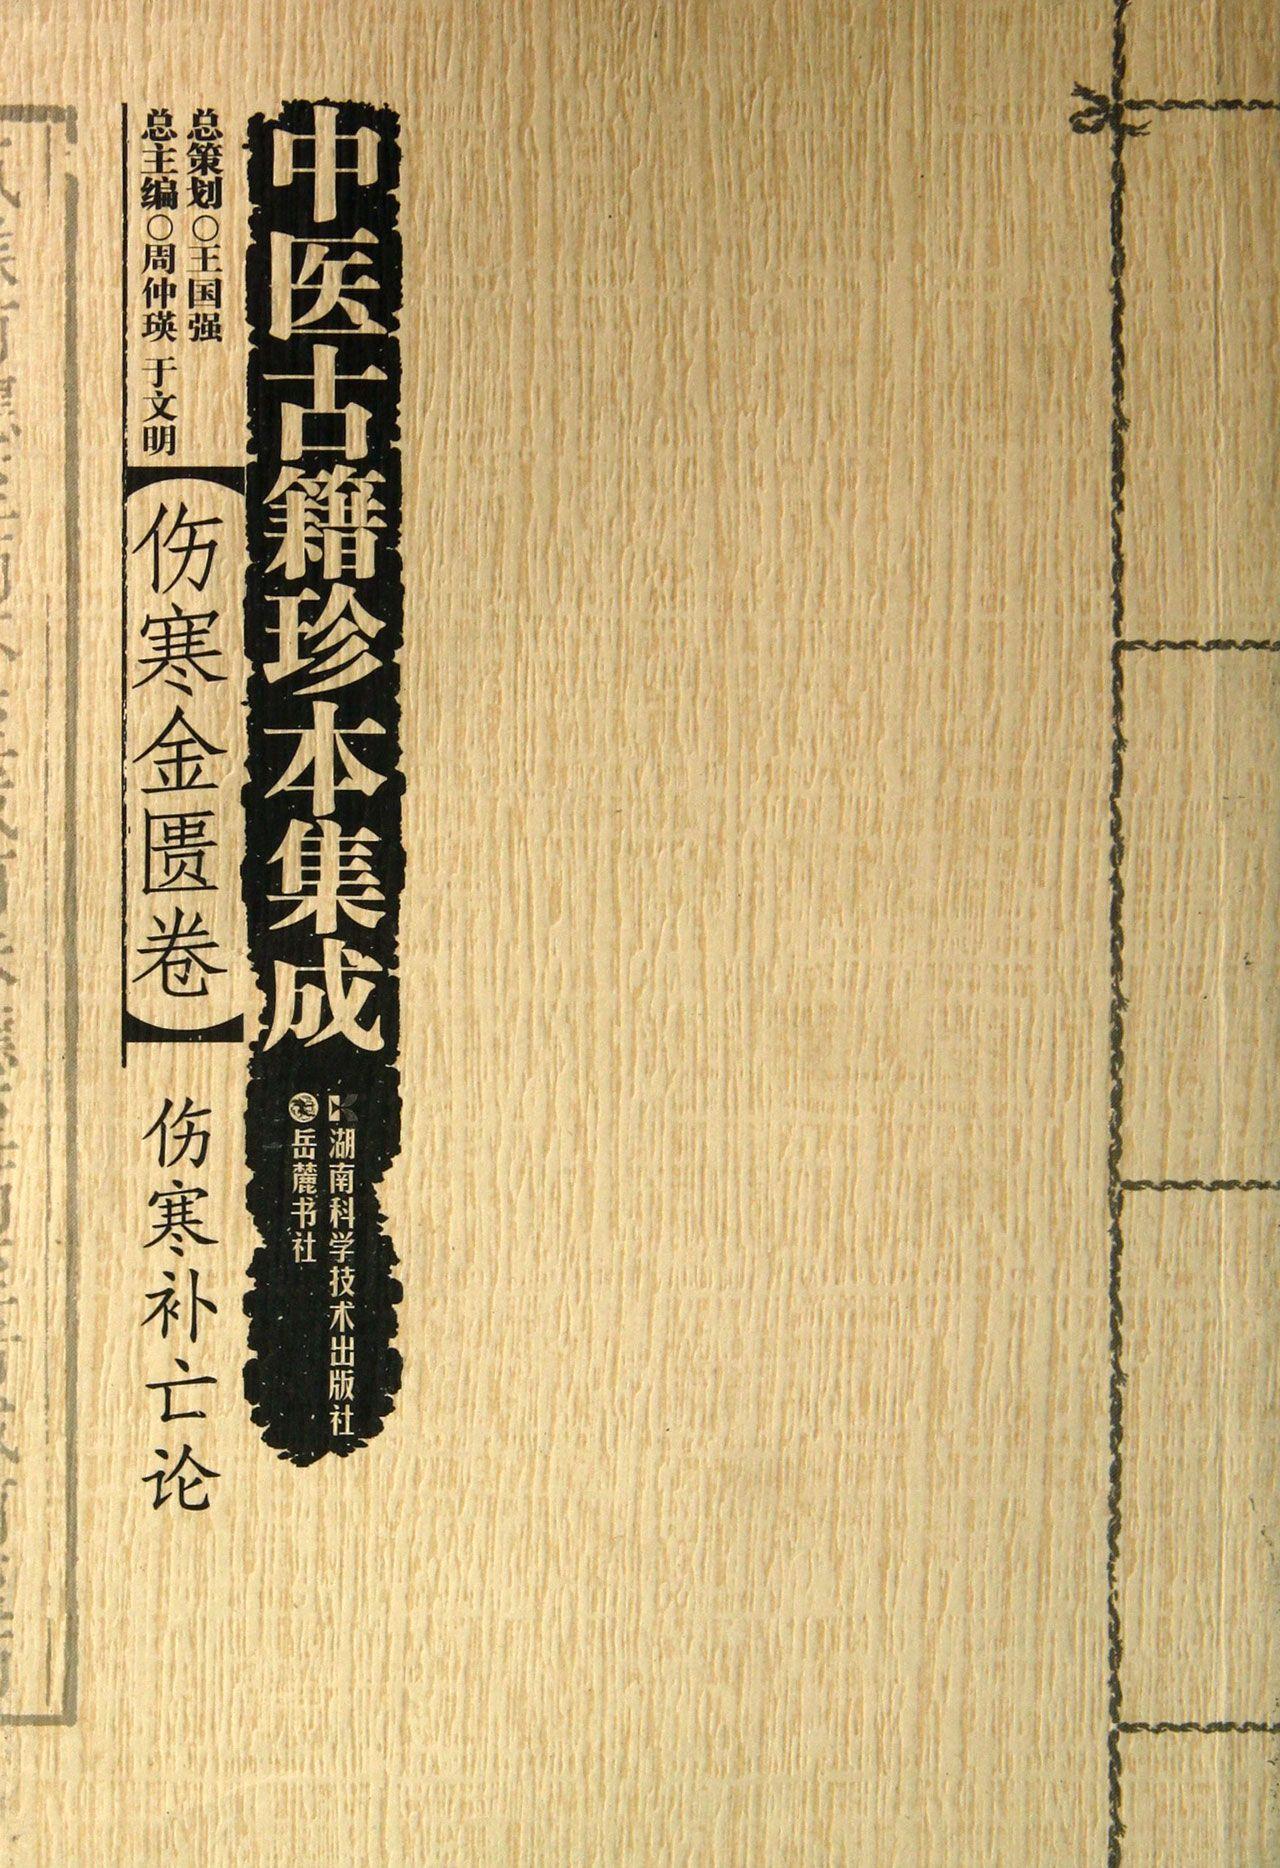 中医古籍珍本集成
湖南科学技术出版社
岳麓书社
总策划○王国强
总主编○周仲瑛 于文明
【伤寒金匮卷】
伤寒补亡论